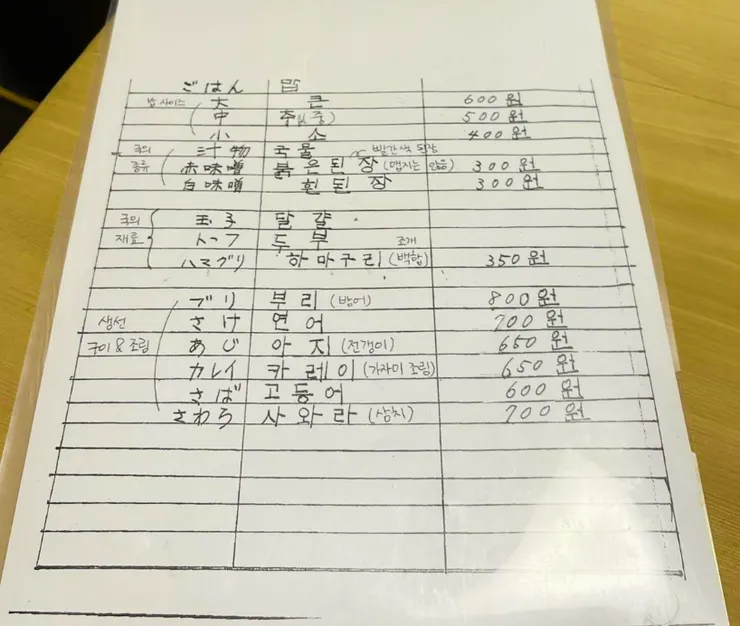 ごはん 밥
밥 사이즈 大 큰 600원
中 추우(중) 500원
小 소 400원
국의 汁物 국물 빨간색 된장
종류 赤味噌 붉은된장 (맵지는 않음) 300원
白味噌 흰된장 300원
국의 玉子 달걀
재료 トーフ 두부 조개
ハマグリ 하마구리 (백합) 350원
ブリ 부리 (방어) 800원
생선 さけ 연어 700원
구이 & 조림 あじ 아지 (전갱이) 650원
カレイ 카레이 (가자미 조림) 650원
さば 고등어 600원
さわら 사와라 (삼치) 700원